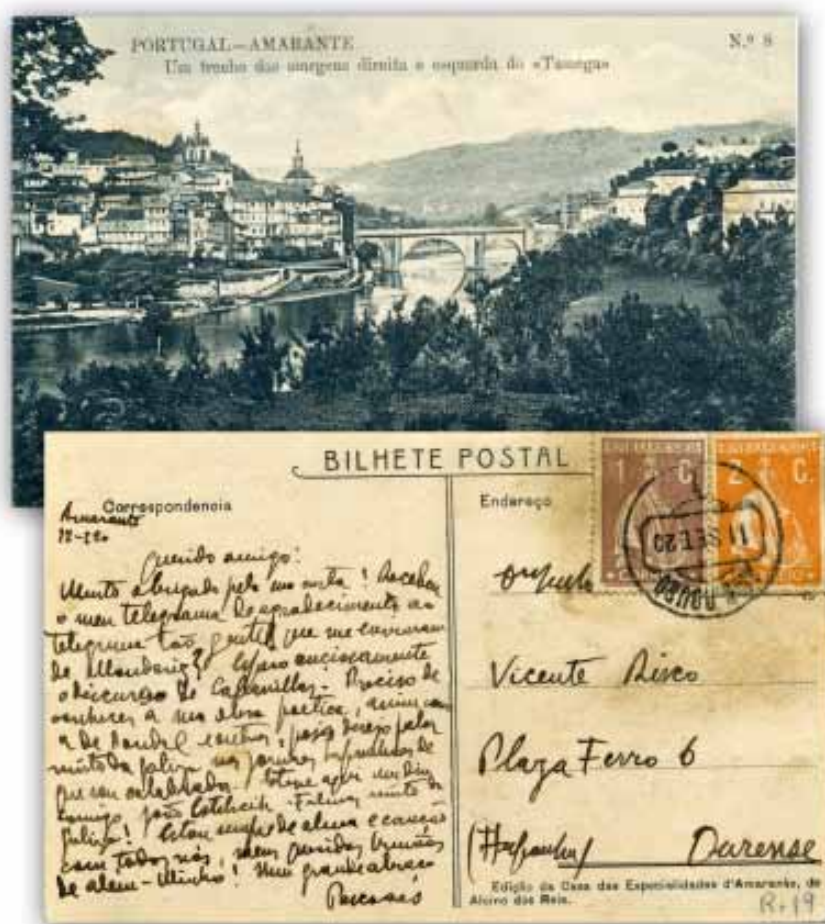 PORTUGAL—AMARANTE
N.º 8
Um trecho das margens direita e esquerda do «Tamega»
BILHETE POSTAL
1 C.
2 C.
Correspondencia
Endereço
11 SET. 20
Amarante
Querido amigo:
Muito obrigado pela sua carta! Recebeu
o meu telegrama de agradecimento ao
telegrama tão gentil que me enviaram
de Mondariz? Espero anciosamente
o discurso de Cabanillas. Preciso de
conhecer a sua obra poetica, assim como
a de e outros, pois desejo falar
muito da Galiza nos jornaes de
que sou colaborador. Esteve aqui um dia
comigo, João Estelrich. Falamos muito da
Galiza! Estou sempre de alma e coração
com todos vós, meus queridos irmãos
de alem-Minho! Um grande abraço
Pascoaes
Vicente Risco
Plaza Ferro 6
(Hespanha) Ourense
Edição da Casa das Especialidades d'Amarante, de
Alvino dos Reis.
R.19